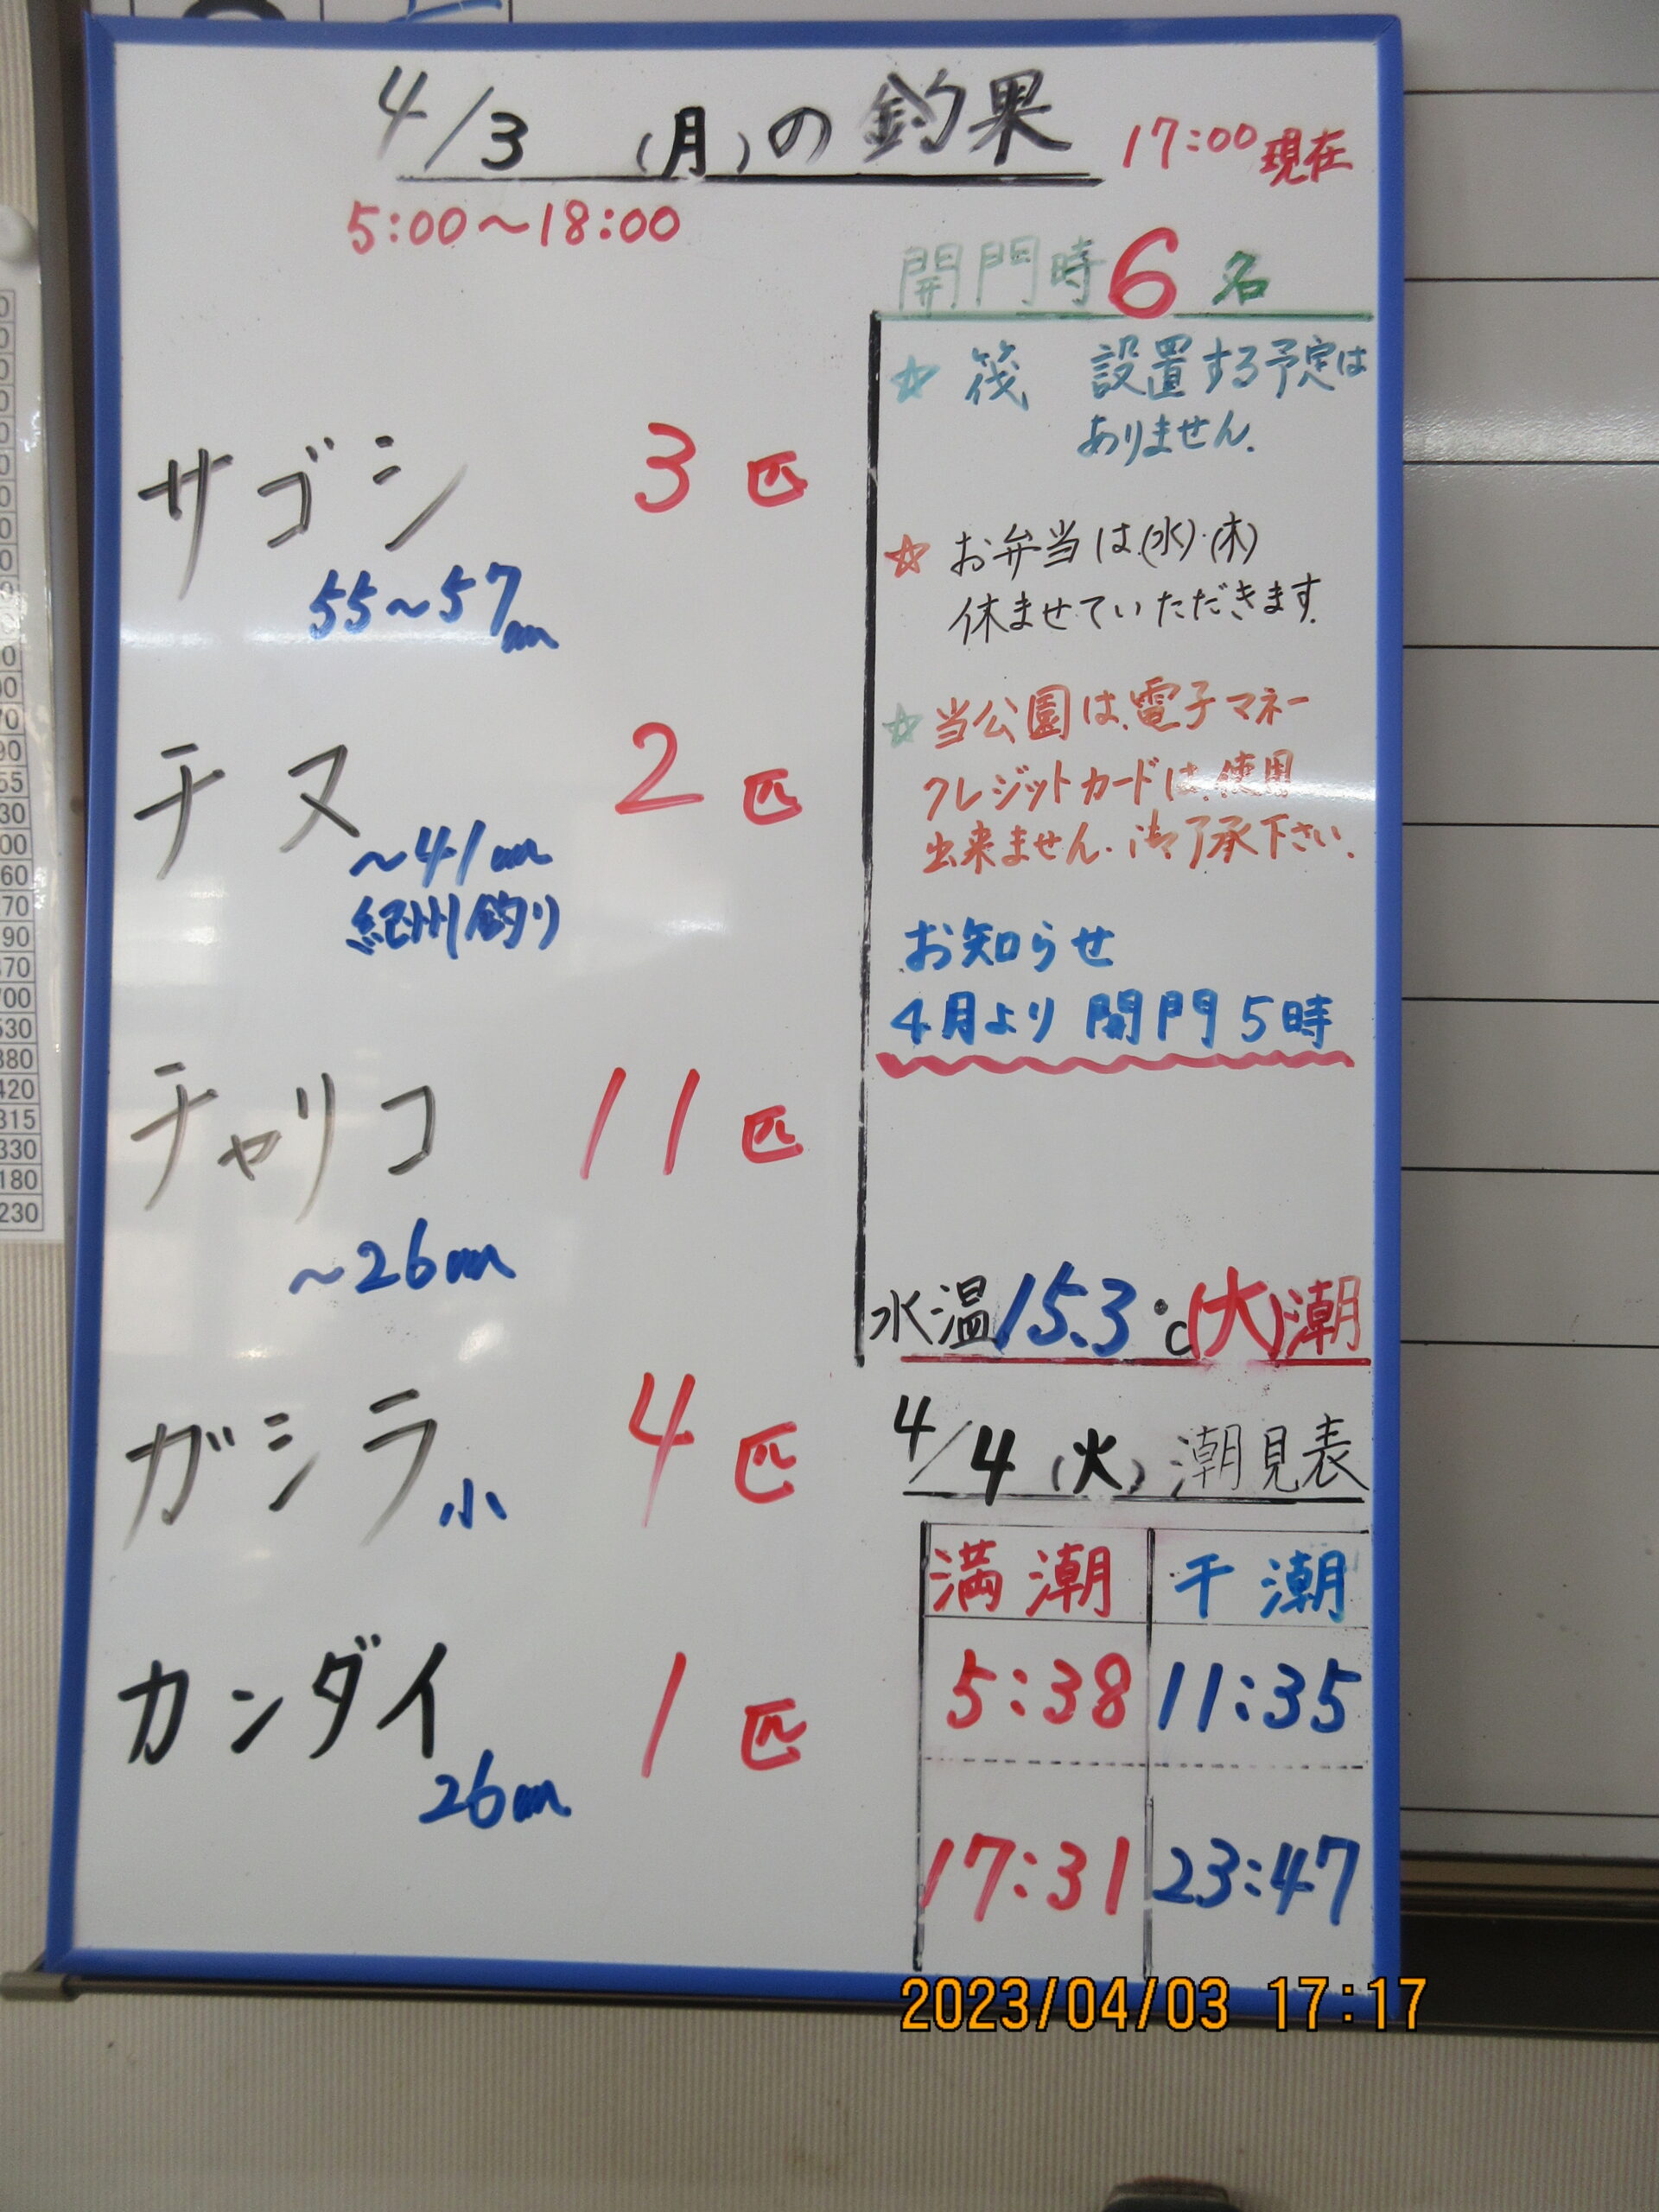 4/3 (月)の釣果
17:00現在
5:00～18:00
サゴシ 3匹
55～57cm
チヌ 2匹
～41cm
紀州釣り
チャリコ 11匹
～26cm
ガシラ小 4匹
カンダイ 1匹
26cm
開門時6名
☆ 筏 設置する予定は
ありません.
☆ お弁当は(水)・(木)
休ませていただきます.
☆ 当公園は、電子マネー
クレジットカードは、使用
出来ません. 御了承下さい.
お知らせ
4月より 開門5時
水温15.3℃(大)潮
4/4 (火) 潮見表
満潮 干潮
5:38 11:35
17:31 23:47
2023/04/03 17:17